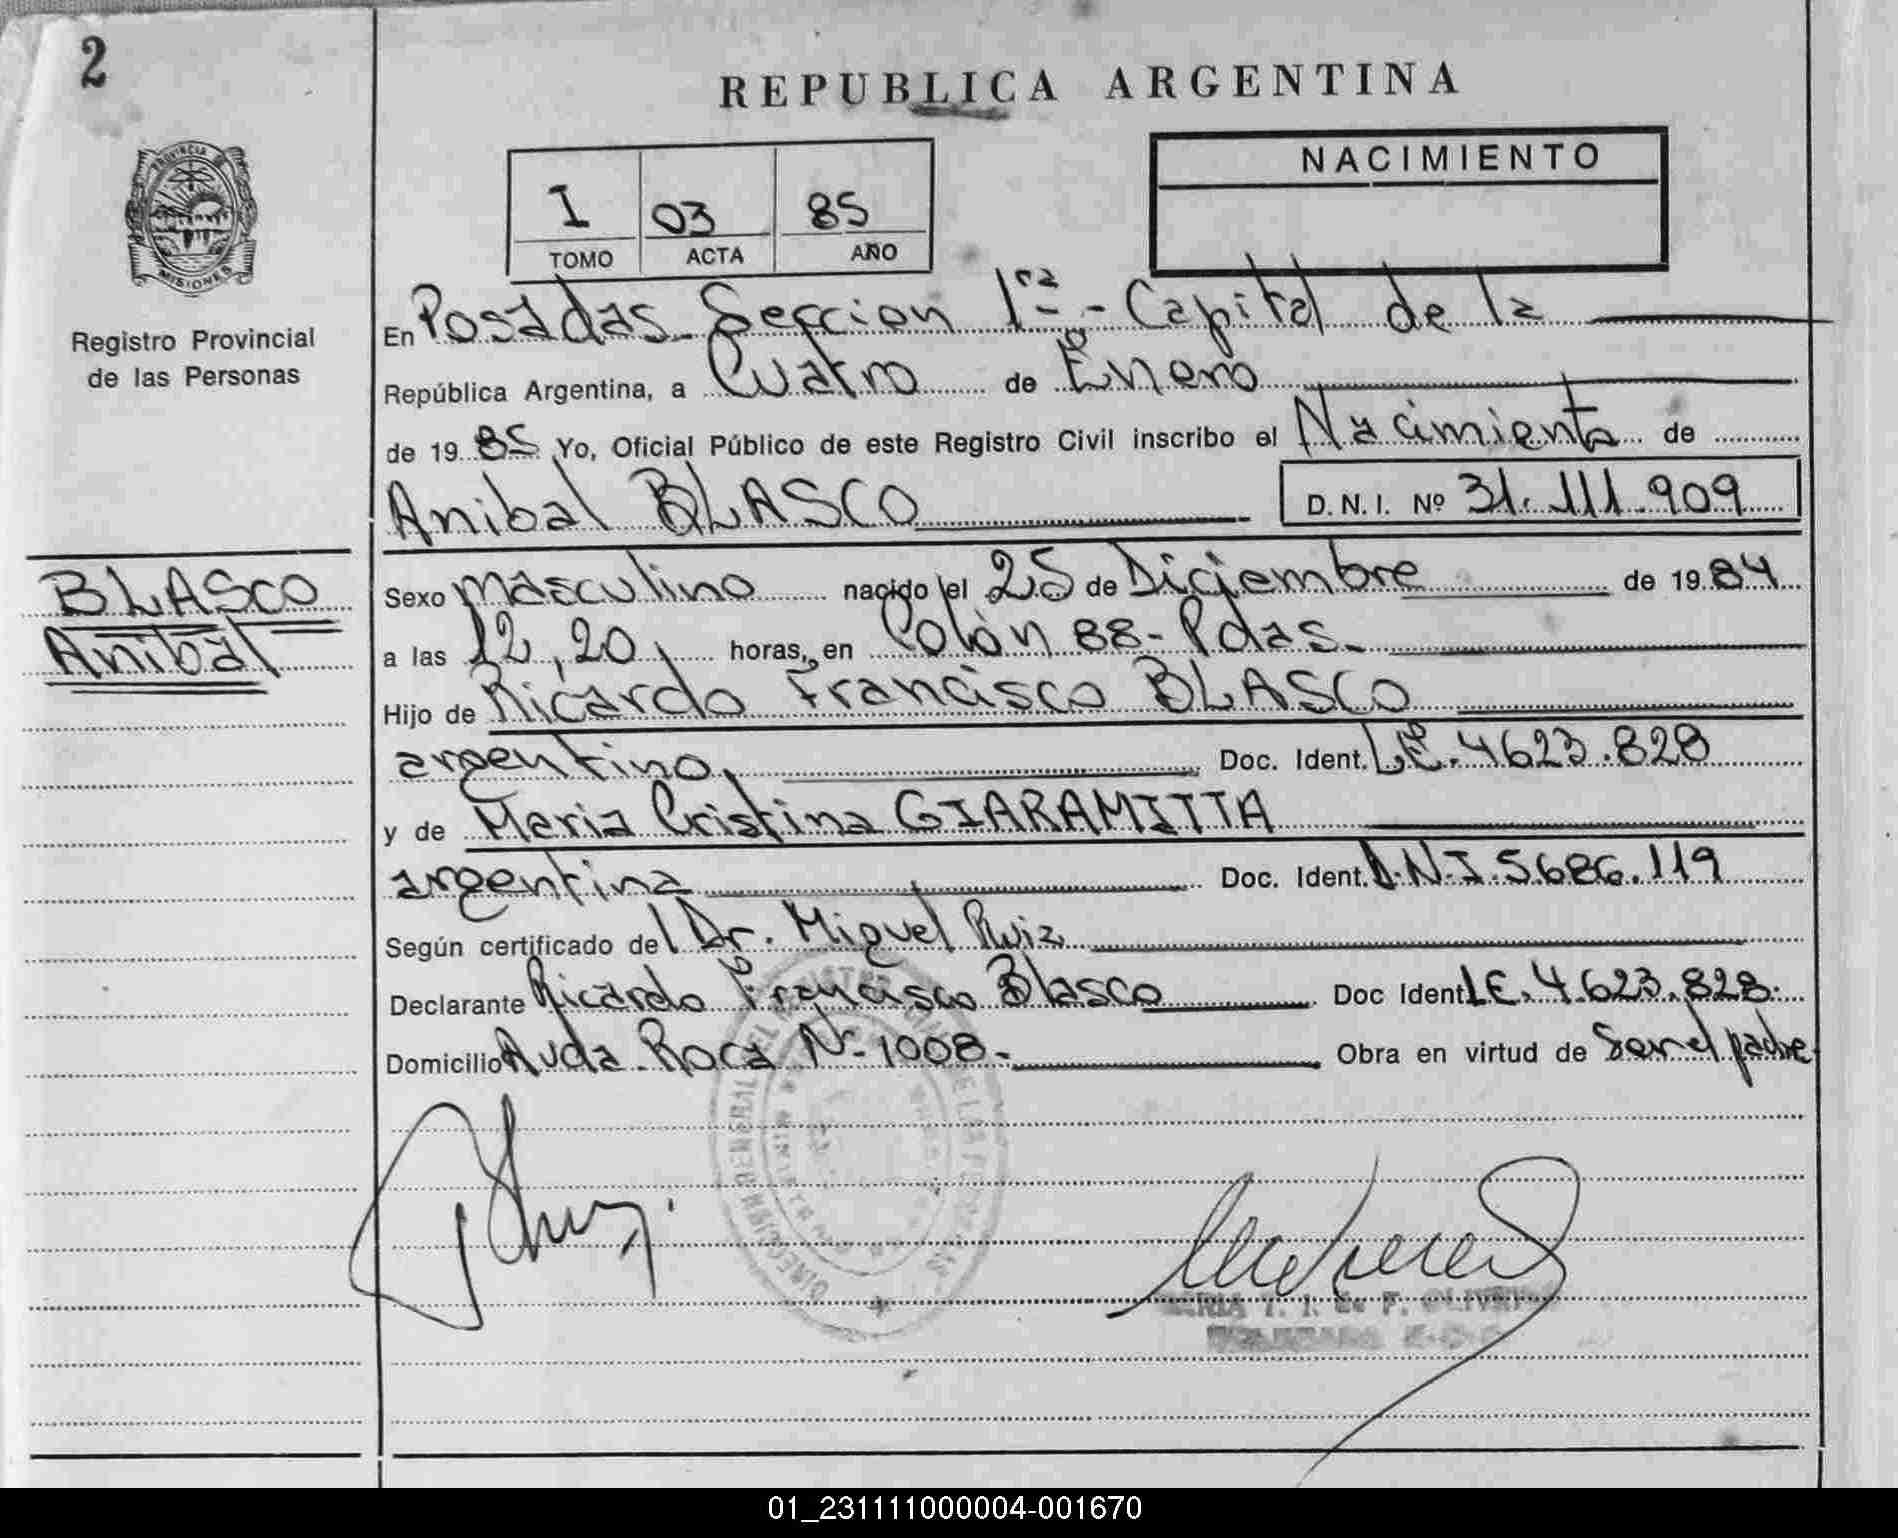 2
REPUBLICA ARGENTINA
PROVINCIA DE
MISIONES
Registro Provincial
de las Personas
I 03 85
TOMO ACTA AÑO
NACIMIENTO
En Posadas Seccion 1ra - Capital de la
República Argentina, a Cuatro de Enero
de 1985 Yo, Oficial Público de este Registro Civil inscribo el Nacimiento de
Anibal BLASCO D. N. I. Nº 31.111.909
BLASCO
Anibal
Sexo masculino nacido el 25 de Diciembre de 1984
a las 12,20 horas, en Colón 88 - Pdas.
Hijo de Ricardo Francisco BLASCO
argentino, Doc. Ident. L.E. 4623.828
y de Maria Cristina GIARAMITTA
argentina Doc. Ident. D.N.I. 5.686.119
Según certificado del Dr. Miguel Ruiz
Declarante Ricardo Francisco Blasco Doc Ident L.E. 4.623.828.
Domicilio Avda. Roca Nº 1008.- Obra en virtud de Ser el padre
DIRECCION GENERAL DEL REGISTRO DE LAS PERSONAS
T. I. de F. OLIVEIRA
01_231111000004-001670